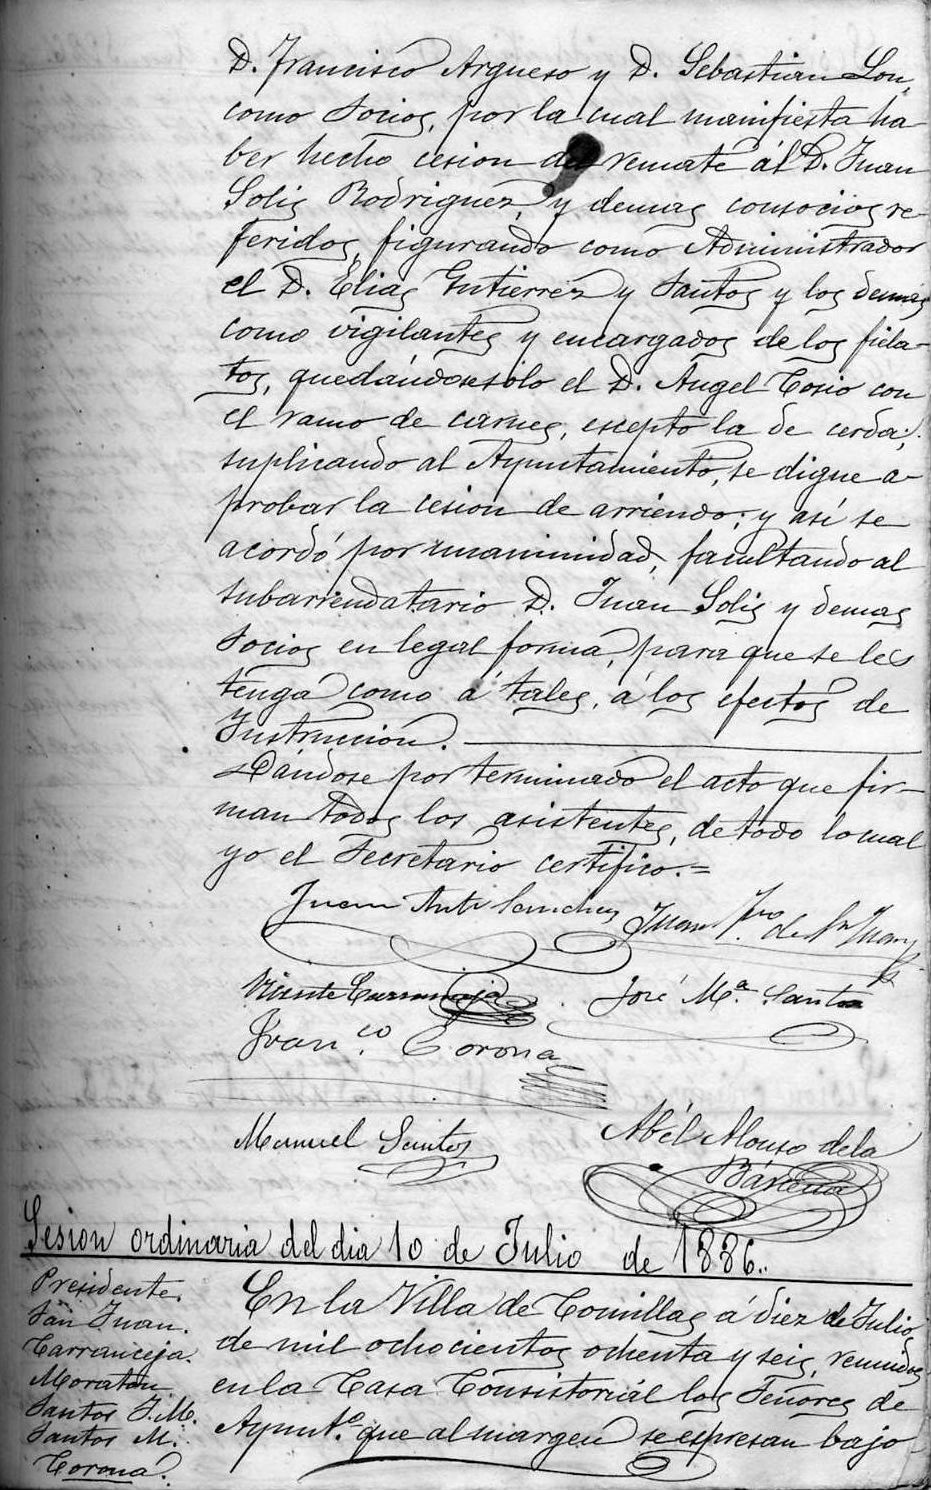 D. Francisco Argueso y D. Sebastian Lon,
como socios, por la cual manifiesta ha
ber hecho cesion del remate ál D. Juan
Solis Rodriguez, y demas consocios re-
feridos, figurando como Administrador
el D. Elias Gutierrez y Santos y los demas
como vigilantes y encargados de los fiela-
tos, quedándose sólo el D. Angel Cosio con
el ramo de carnes, escepto la de cerda;
suplicando al Ayuntamiento, se digne a-
probar la cesion de arriendo; y así se
acordó por unanimidad, facultando al
subarriendatario D. Juan Solis y demas
socios en legal forma, para que se les
tenga como á tales, á los efectos de
Instruccion.
Dándose por terminado el acto que fir-
man todos los asistentes, de todo lo cual
yo el Secretario certifico.=
Juan Antº Sanchez Juan Fco de Sn Juan
Vicente Carranceja José Mª Santos
Franco. Corona
Manuel Santos Abél Alonso de la
Bárcena
Sesion ordinaria del dia 10 de Julio de 1886.
Presidente.
San Juan.
Carranceja.
Moratón
Santos J. M.
Santos M.
Corona.
En la Villa de Comillas á diez de Julio,
de mil ochocientos ochenta y seis, reunidos
en la Casa Consistorial los Señores de
Ayuntº. que al margen se espresan bajo